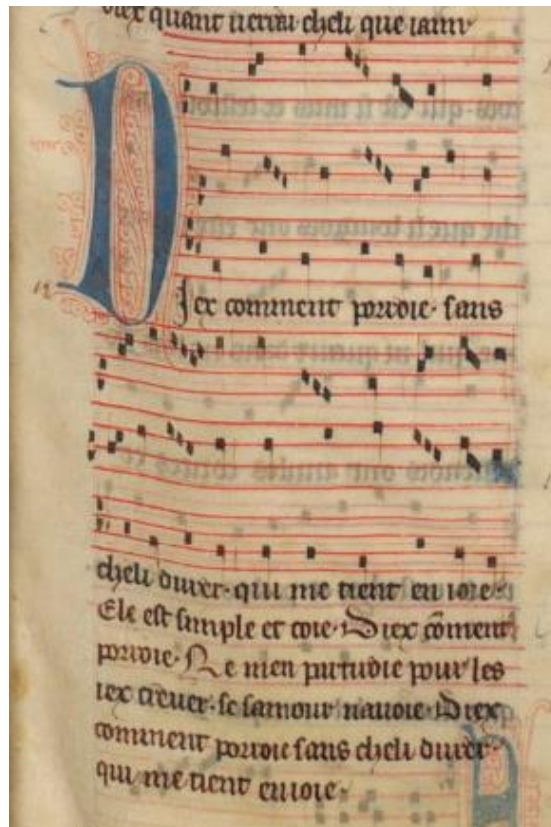 diex quant uerrai cheli que iaim
Diex comment porroie· sans
cheli durer· qui me tient en ioie·
Ele est simple et coie· Diex cōment
porroie· Ne men partiroie pour les
iex creuer· se samour nauoie· Diex
comment porroie sans cheli durer·
qui me tient en ioie·